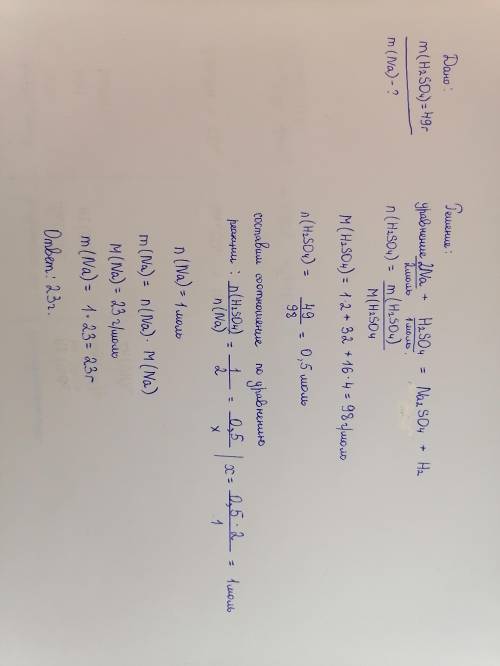 Дано:
m(H₂SO₄)=49г
m(Na)-?
Решение:
уравнение 2Na + H₂SO₄ = Na₂SO₄ + H₂
2моль 1моль.
n(H₂SO₄) = m(H₂SO₄)
M(H₂SO₄
M(H₂SO₄) = 1·2 + 32 + 16·4 = 98г/моль
n(H₂SO₄) = 49/98 = 0,5 моль
составим соотношение по уравнению
реакции: n(H₂SO₄)/n(Na) = 1/2 = 0,5/x | x = 0,5·2/1 = 1моль
n(Na) = 1 моль
m(Na) = n(Na) · M(Na)
M(Na) = 23 г/моль
m(Na) = 1 · 23 = 23г
Ответ: 23г.